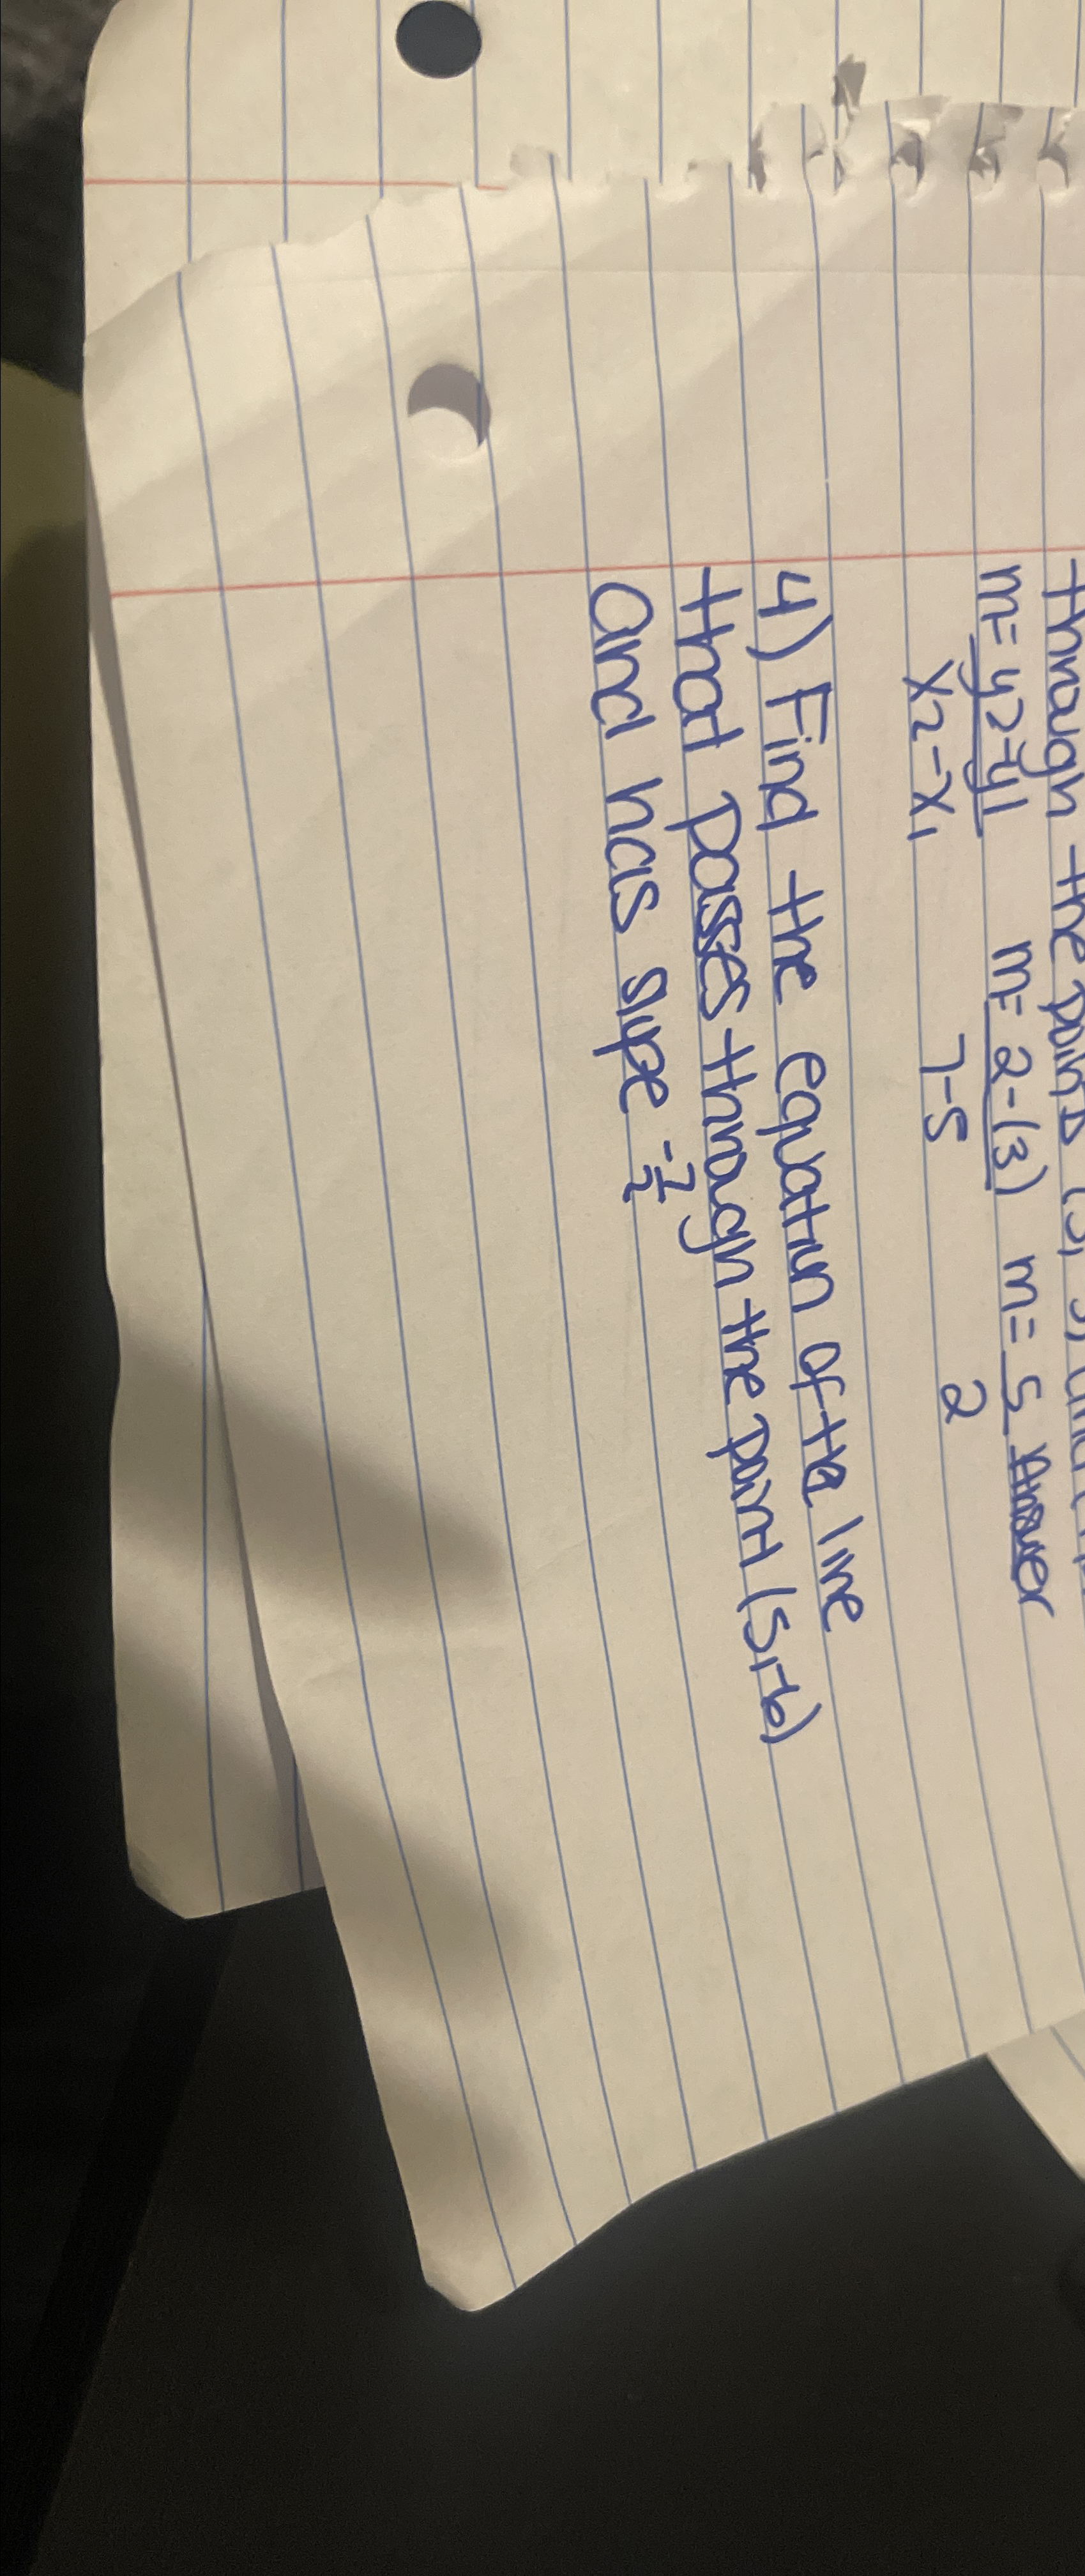 through the points
m= y2-y1 m= 2-(3) m= 5 Answer
x2-x1 7-5 2
4) Find the equation of the line
that passes through the point (5,-6)
and has slope